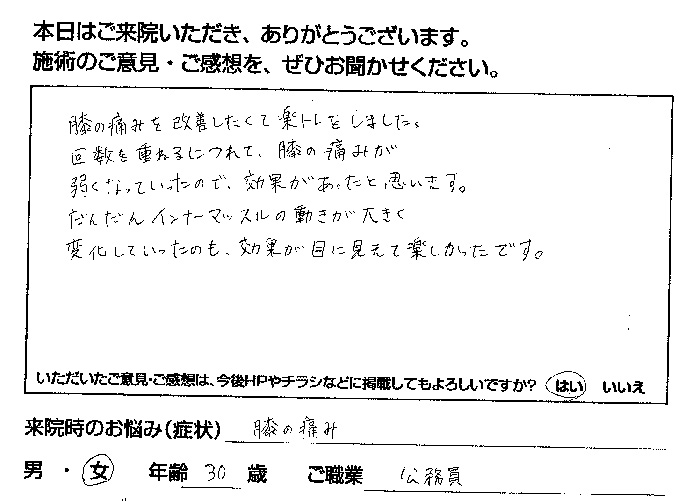 本日はご来院いただき、ありがとうございます。
施術のご意見・ご感想を、ぜひお聞かせください。
膝の痛みを改善したくて楽トレをしました。
回数を重ねるにつれて、膝の痛みが
弱くなっていったので、効果があったと思います。
だんだんインナーマッスルの動きが大きく
変化していったのも、効果が目に見えて楽しかったです。
いただいたご意見・ご感想は、今後HPやチラシなどに掲載してもよろしいですか? はい いいえ
来院時のお悩み(症状) 膝の痛み
男 ・ 女 年齢 30 歳 ご職業 公務員